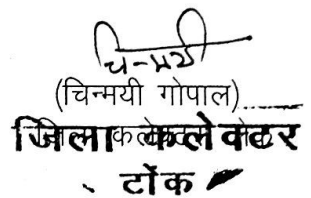 चिन्मयी
(चिन्मयी गोपाल)
जिला कलेक्टर
टोंक